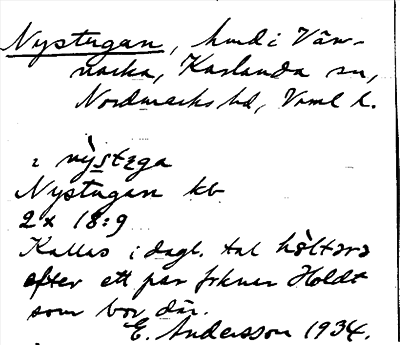 Nystugan, hmd i Vär-
nacka, Karlanda sn,
Nordmarks hd, Vrml l.
i nỳstega
Nystugan kb
2x 18:9
Kallas i dagl. tal hòltərə
efter ett par frknar Holdt
som bor där.
E. Andersson 1934.